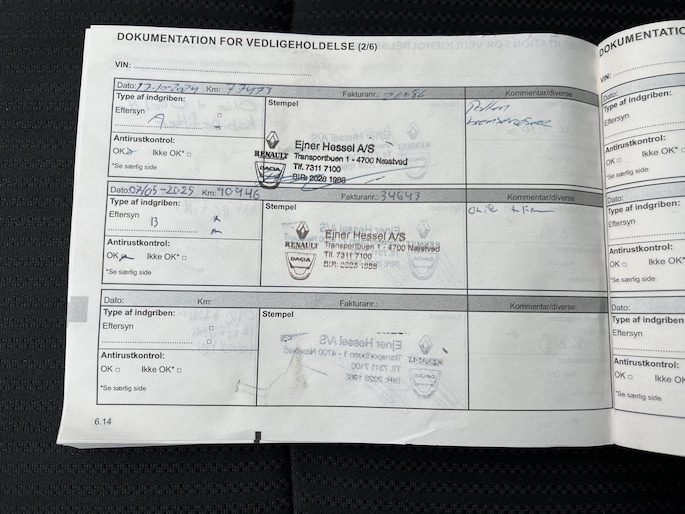 DOKUMENTATION FOR VEDLIGEHOLDELSE (2/6)
VIN:
Dato: 17-10-2024 Km: 77473 Fakturanr.: Kommentar/diverse
Type af indgriben: Stempel
Eftersyn A
Antirustkontrol:
OK Ikke OK*
*Se særlig side
RENAULT
DACIA
Ejner Hessel A/S
Transportbuen 1 - 4700 Næstved
Tlf. 7311 7100
BIR: 2028 1988
Dato: 07/05-2025 Km: 90946 Fakturanr.: 34643 Kommentar/diverse
Type af indgriben: Stempel
Eftersyn B
Antirustkontrol:
OK Ikke OK*
*Se særlig side
RENAULT
DACIA
Ejner Hessel A/S
Transportbuen 1 - 4700 Næstved
Tlf. 7311 7100
BIR: 2028 1988
Dato: Km: Fakturanr.: Kommentar/diverse
Type af indgriben: Stempel
Eftersyn
Antirustkontrol:
OK Ikke OK*
*Se særlig side
6.14
DOKUMENTATIO
VIN:
Dato:
Type af indgriben:
Eftersyn
Antirustkontrol:
OK Ikke OK
*Se særlig side
Dato:
Type af indgriben:
Eftersyn
Antirustkontrol:
OK Ikke OK*
*Se særlig side
Dato:
Type af indgriben:
Eftersyn
Antirustkontrol:
OK Ikke OK*
*Se særlig side